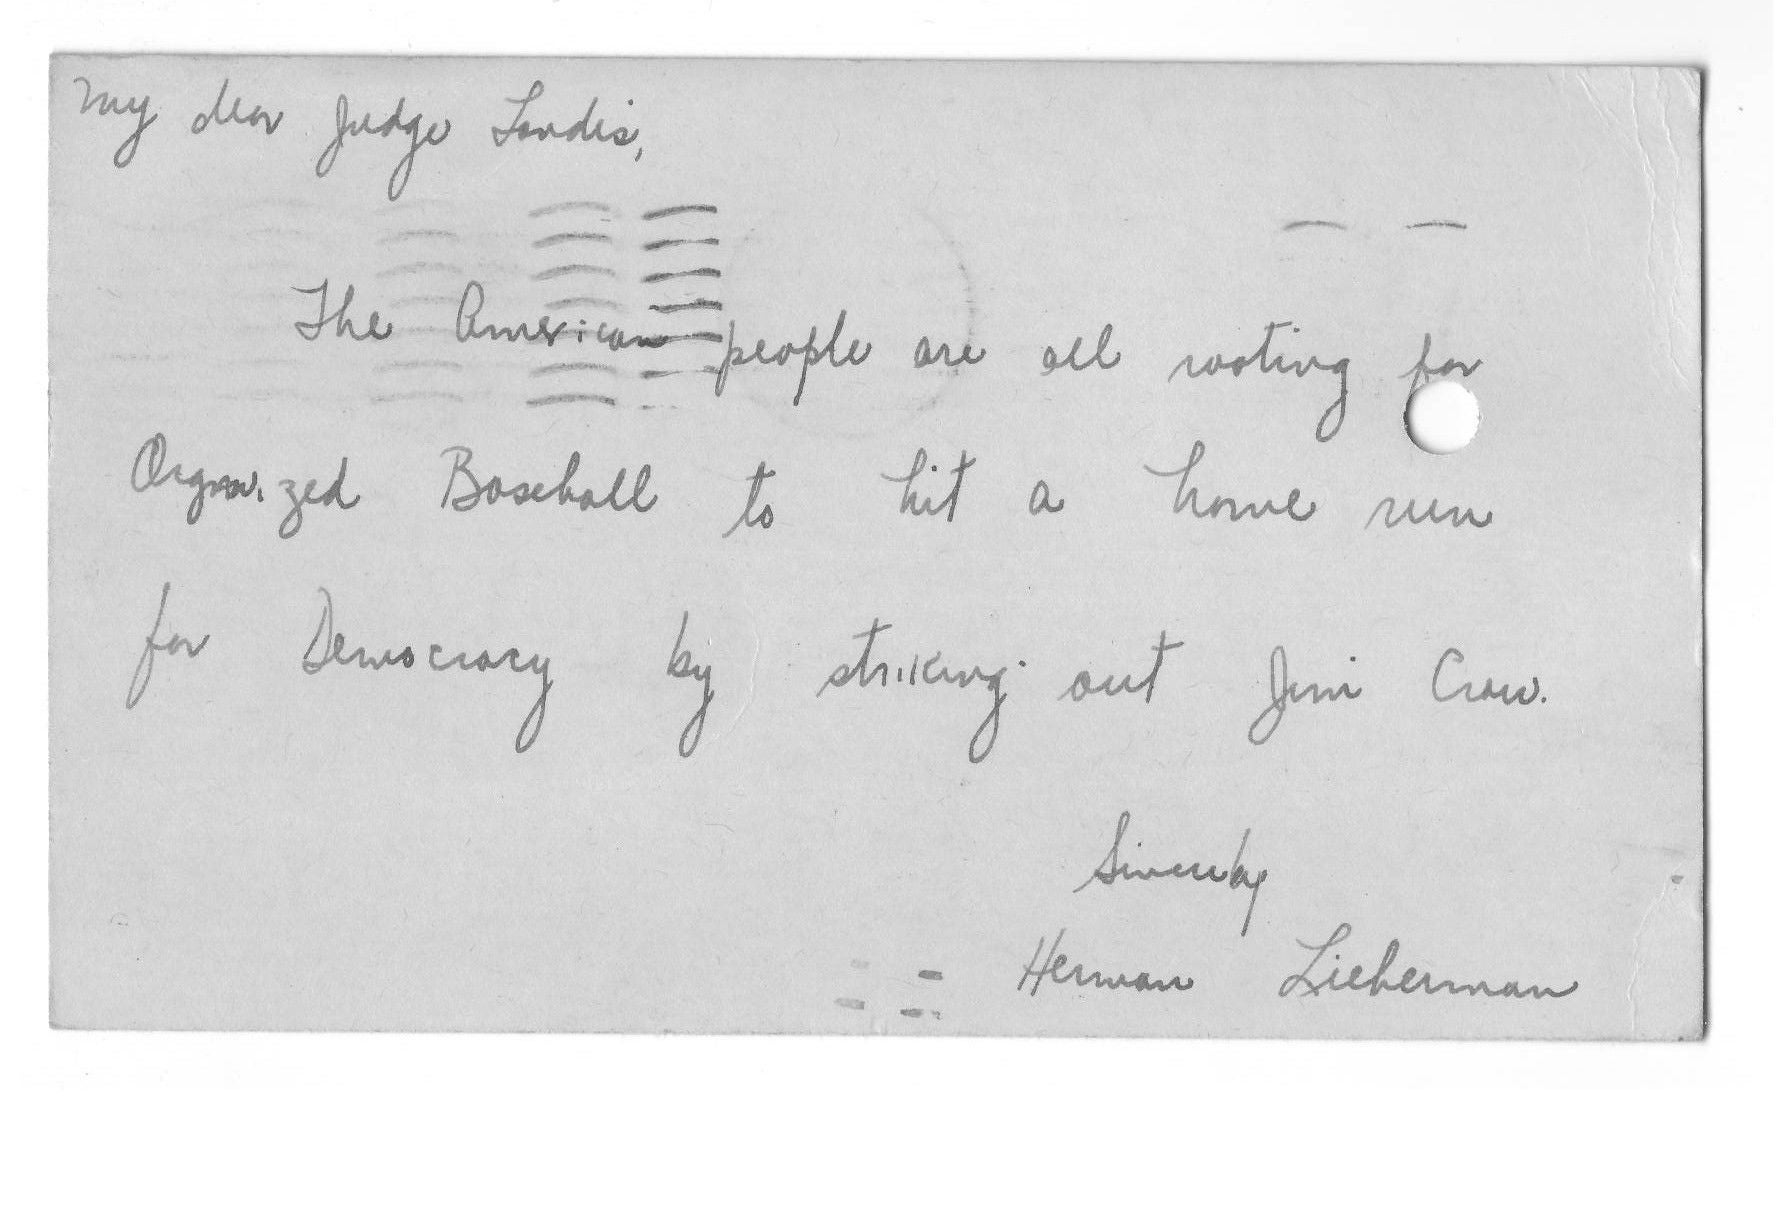 My dear Judge Landis,
The American people are all rooting for
Organized Baseball to hit a home run
for Democracy by striking out Jim Crow.
Sincerely
Herman Lieberman